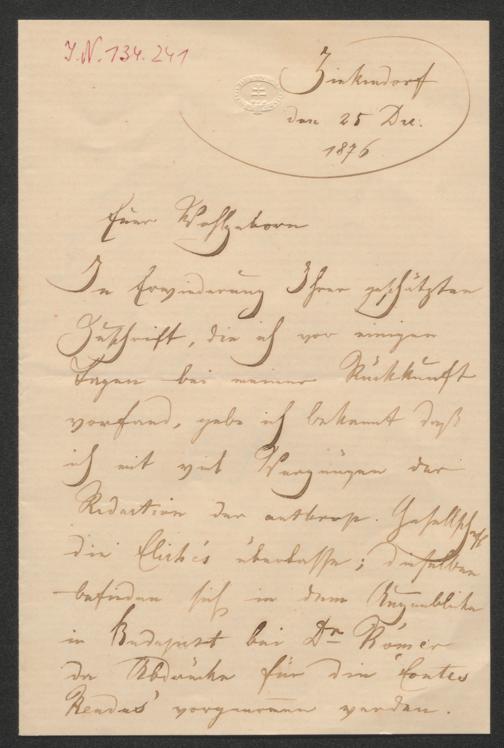 I.N. 134.241
Zinkendorf
den 25 Dec.
1876
Euer Wohlgeborn
In Erwiederung Ihrer geschätzten
Zuschrift, die ich vor einigen
Tagen bei meiner Rückkunft
vorfand, gebe ich bekannt daß
ich mit viel Vergnügen der
Redaction der anthrop. Gesellschaft
die Clichés überlasse; dieselben
befinden sich in dem Augenblicke
in Budapest bei Dr Rómer
da Abdrücke für die 'Comtes
Rendus' vorgenommen werden.